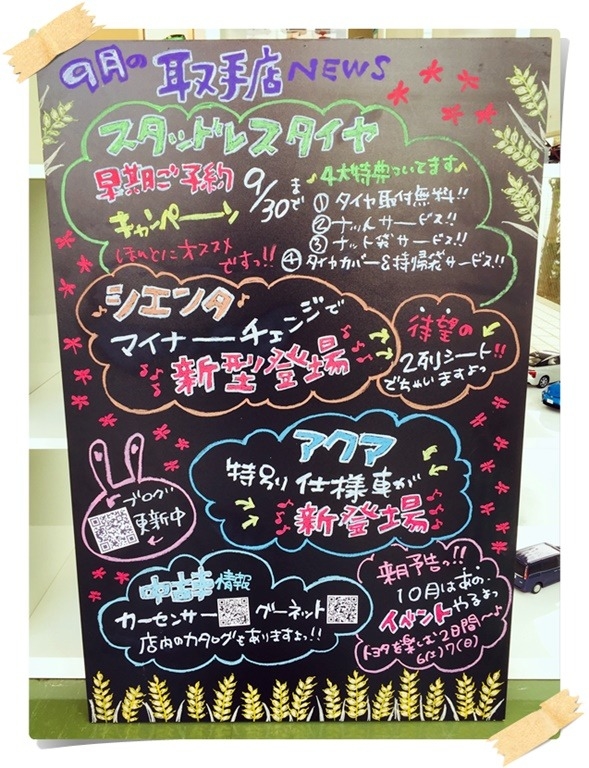 9月の 取手店 NEWS
スタッドレスタイヤ
早期ご予約
キャンペーン
9/30まで
ほんとにオススメ
ですっ!!
♪4大特典ついてます♪
① タイヤ取付無料!!
② ナットサービス!!
③ ナット袋サービス!!
④ タイヤカバー&持帰袋サービス!!
シエンタ♪
マイナーチェンジで
新型登場
待望の
2列シート!!
でちゃいますよっ
アクア
特別仕様車が
新登場
ブログ
更新中
中古車情報
カーセンサー グーネット
店内のカタログもありますよっ!!
来月予告っ!!
10月はあの、
イベントやるよっ
トヨタを楽しむ2日間〜♪
6(土)7(日)